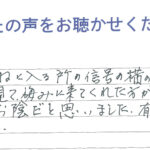 たの声をお聴かせくだ
ねと入る所の信号の横の
見て、悔みに来てくれた方が
お陰だと思いました。有